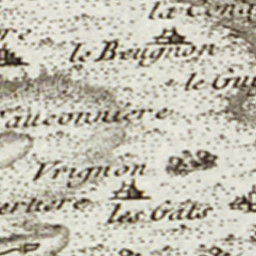 la Cond
re
le Beugnon
le Gui
Fauconnière
Vrignon
ertiere
les Gâts